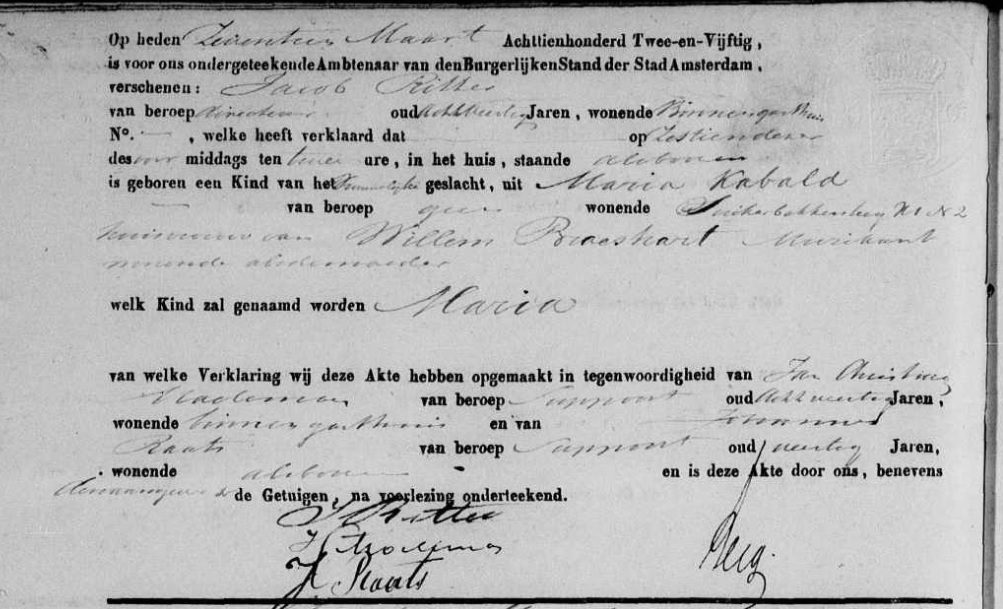 Op heden Zeventien Maart Achttienhonderd Twee-en-Vijftig,
is voor ons ondergeteekende Ambtenaar van den Burgerlijken Stand der Stad Amsterdam,
verschenen: Jacob Ritter
van beroep directeur oud Acht Veertig Jaren, wonende Binnengasthuis
No. — , welke heeft verklaard dat op Zestien dezer
des voor middags ten twee ure, in het huis, staande alsboven
is geboren een Kind van het Vrouwelijke geslacht, uit Maria Kabald
— van beroep geen wonende Suikerbakkersteeg N 2
huisvrouw van Willem Braeshart Muzikant
wonende als de moeder
welk Kind zal genaamd worden Maria
van welke Verklaring wij deze Akte hebben opgemaakt in tegenwoordigheid van Jan
van beroep Suppoost oud Acht veertig Jaren,
wonende binnengasthuis en van Johannes
Staats van beroep Suppoost oud veertig Jaren,
wonende alsboven en is deze Akte door ons, benevens
de Getuigen, na voorlezing onderteekend.
J Ritter
J Staats